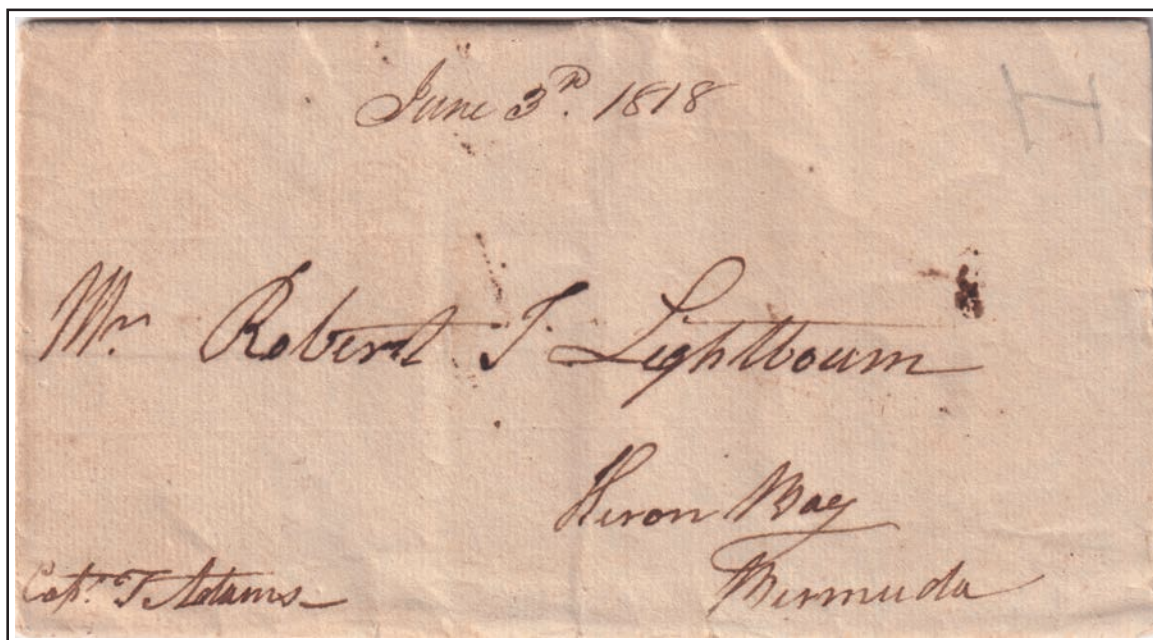 June 3rd. 1818
H
Mr Robert T Lightbourn
Heron Bay
Bermuda
Capt. T. Adams